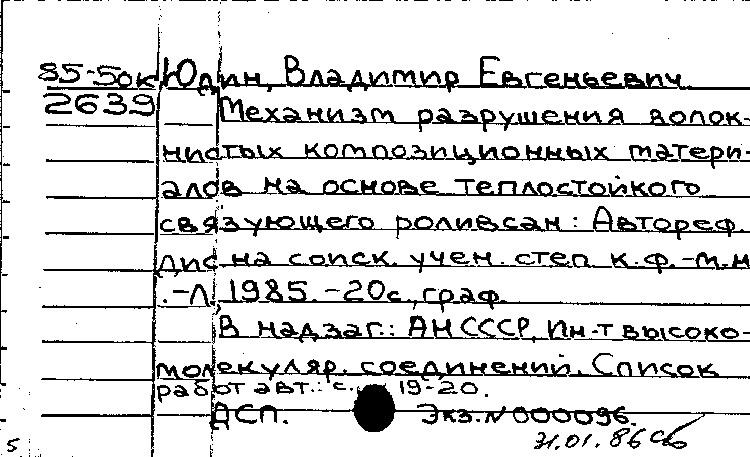 85-5ок Юдин, Владимир Евгеньевич
2639 Механизм разрушения волок-
нистых композиционных матери-
алов на основе теплостойкого
связующего роливсан: Автореф.
дис на соиск. учен. степ к.ф.-м.н
.-Л., 1985.-20с., граф.
В надзаг.: АН СССР, Ин-т высоко-
молекуляр. соединений. Список
работ авт.: с. 19-20.
ДСП. Экз. N 000096.
31.01.86
5